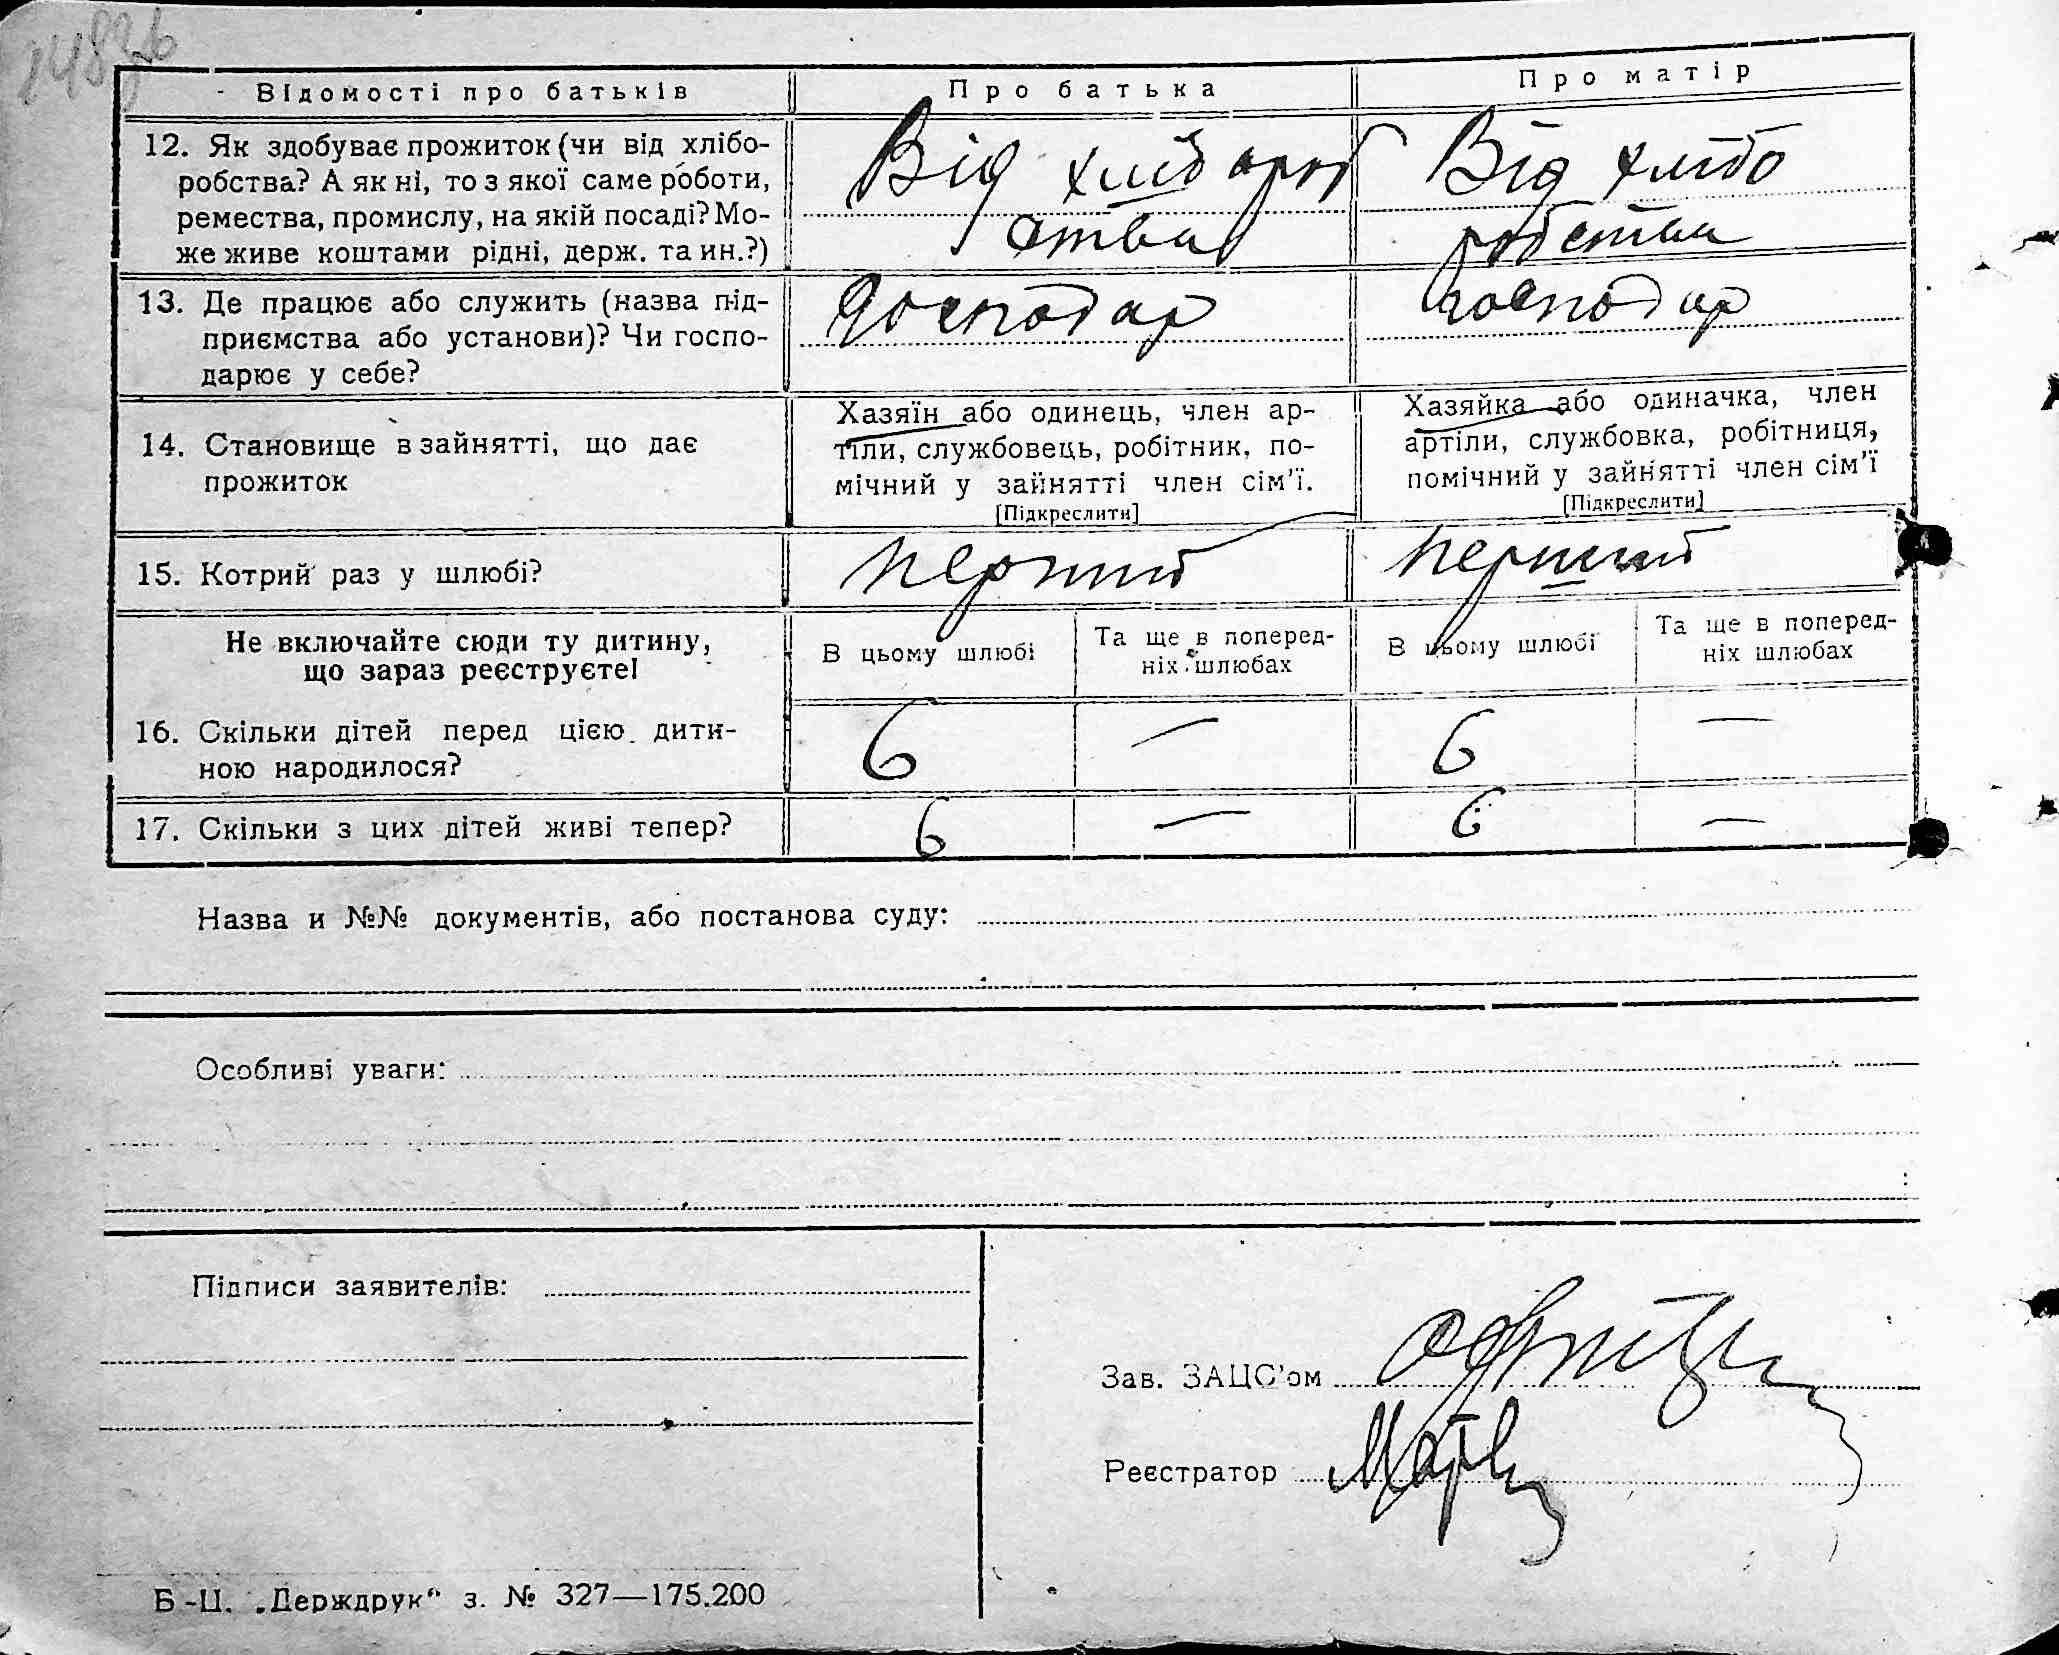 Відомості про батьків
Про батька
Про матір
12. Як здобуває прожиток (чи від хлібо-
робства? А як ні, то з якої саме роботи,
ремества, промислу, на якій посаді? Мо-
же живе коштами рідні, держ. та ин.?)
Від хлібороб
ства
Від хлібо
робства
13. Де працює або служить (назва під-
приємства або установи)? Чи госпо-
дарює у себе?
Господар
Господар
14. Становище в зайнятті, що дає
прожиток
Хазяїн або одинець, член ар-
тіли, службовець, робітник, по-
мічний у зайнятті член сім'ї.
[Підкреслити]
Хазяйка або одиначка, член
артіли, службовка, робітниця,
помічний у зайнятті член сім'ї
[Підкреслити]
15. Котрий раз у шлюбі?
перший
перший
Не включайте сюди ту дитину,
що зараз реєструєте!
В цьому шлюбі
Та ще в поперед-
ніх шлюбах
В цьому шлюбі
Та ще в поперед-
ніх шлюбах
16. Скільки дітей перед цією дити-
ною народилося?
6 — 6 —
17. Скільки з цих дітей живі тепер?
6 — 6 —
Назва и №№ документів, або постанова суду:
Особливі уваги:
Підписи заявителів:
Зав. ЗАЦС'ом
Реєстратор
Б-Ц. „Держдрук" з. № 327—175.200